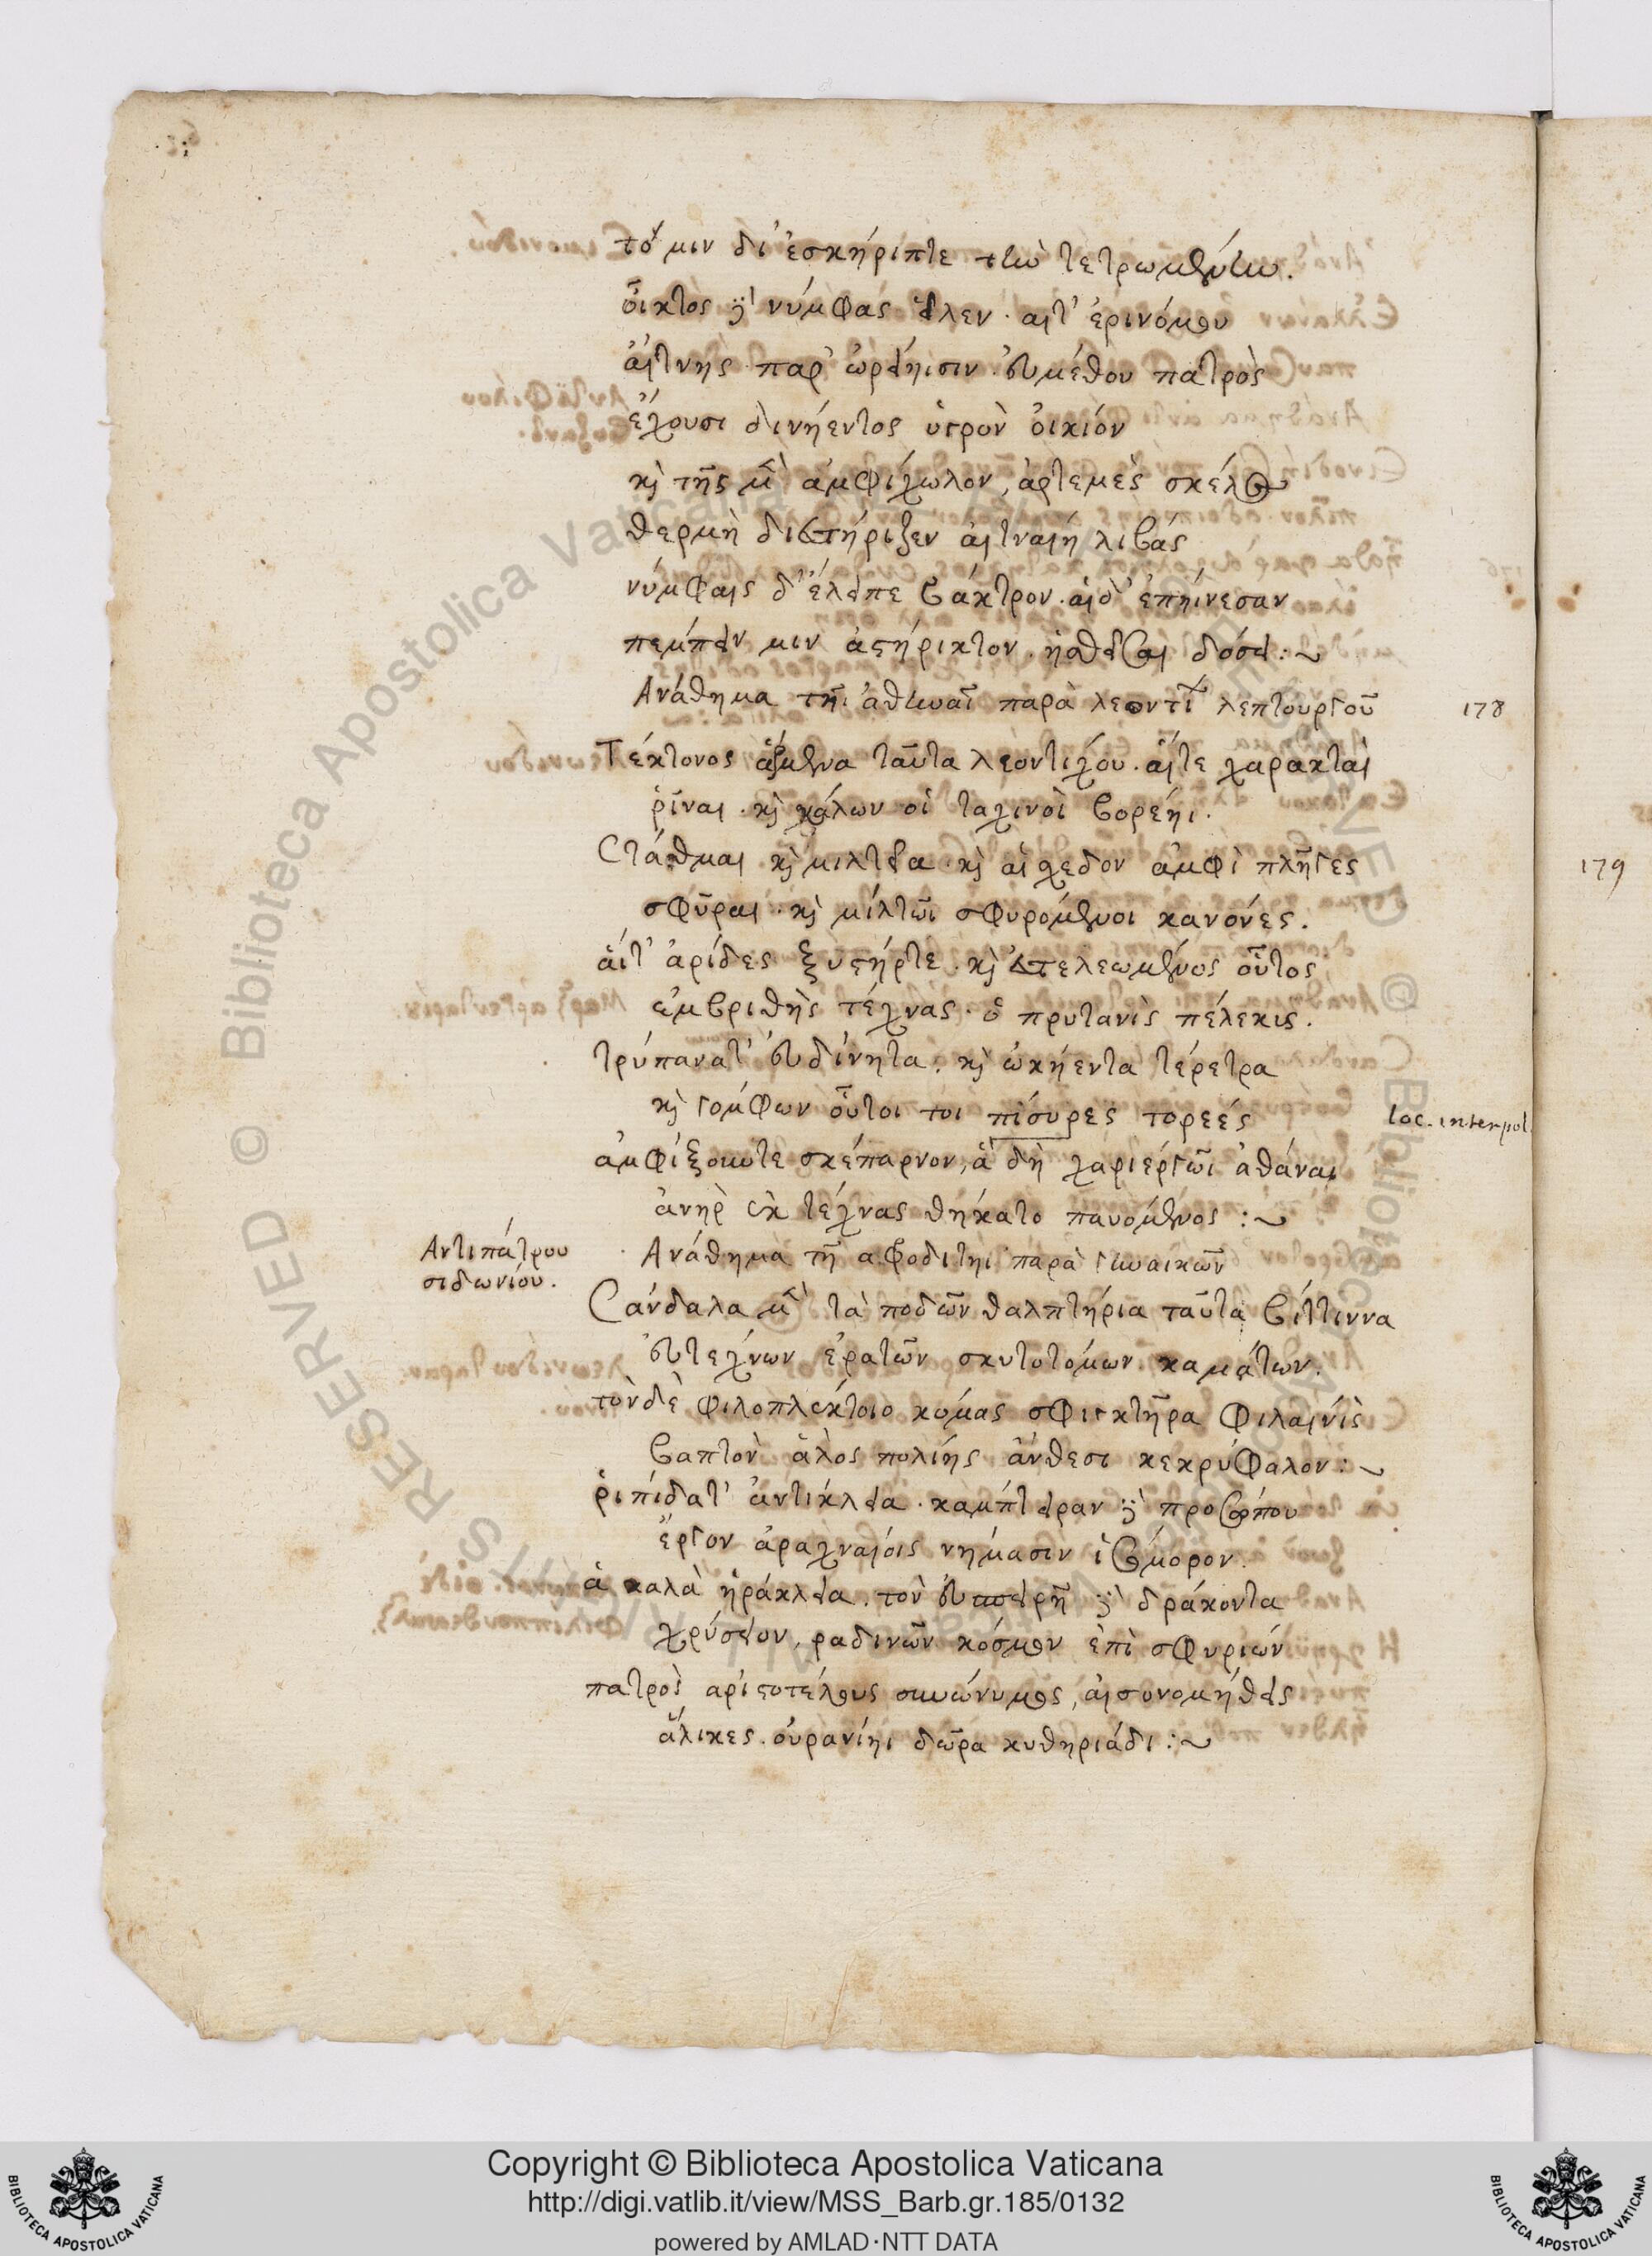 τό μιν δι' ἐσκήριπτε τὴν τετρωμένην.
οἶκτος δὲ νύμφας εἷλεν. αἵτ' ἐρινόμου
αἴτνης παρ' ὠρείηισιν. συμέθου πατρὸς
ἔχουσι δινήεντος ὑγρὸν οἰκίον
καὶ τῆς μὲν ἀμφίχωλον, ἀρτεμὲς σκέλος
θερμὴ διεστήριξεν αἰτναίη λιβάς
νύμφαις δ' ἔλειπε βάκτρον. αἱ δ' ἐπήινεσαν
πέμπειν μιν ἀστήρικτον. ἡσθεῖσαι δόσει:~
Ανάθημα τῆι ἀθηνᾶι παρὰ λεοντί λεπτουργοῦ
178
Τέκτονος ἄρμενα ταῦτα λεοντίχου. αἵτε χαρακταὶ
ῥῖναι. καὶ κάλων οἱ ταχινοὶ βορέηι.
Στάθμαι καὶ μιλτεῖα. καὶ αἱ σχεδον ἀμφὶ πλῆγες
σφῦραι. καὶ μίλτωι σφυρόμενοι κανόνες.
αἵτ' ἀρίδες ξυστήρτε. καὶ ἐστελεωμένος οὗτος
ἐμβριθὴς τέχνας. ὁ πρυτανὶς πέλεκις.
τρύπανατ' εὐδίνητα. καὶ ὠκήεντα τέρετρα
καὶ γόμφων οὗτοι τοι πίσυρες τορεές
loc. interpol.
ἀμφίξοωτε σκέπαρνον, ἃ δὴ χαριέργωι ἀθάναι
ἀνὴρ ἐκ τέχνας θήκατο παυόμενος:~
Αντιπάτρου
σιδωνίου.
Ανάθημα τῆ αφοδιτηι παρὰ γυναικῶν
Σάνδαλα μὲν τὰ ποδῶν θαλπτήρια ταῦτα βίττιννα
εὐτεχνων ἐρατῶν σκυτοτόμων καμάτων.
τὸν δὲ φιλοπλέκτοιο κόμας σφιγκτῆρα φιλαινὶς
βαπτὸν ἁλὸς πολιῆς ἄνθεσι κεκρύφαλον:~
ῥιπίδατ' ἀντίκλεια. καμπτείραν δὲ προσώπου
ἔργον ἀραχναίοις νήμασιν ἰσόμορον.
ἁ καλὰ ἡράκλεια. τὸν εὐσπειρῆ δὲ δράκοντα
χρύσειον, ραδινῶν κόσμον ἐπὶ σφυρίων
πατρὸς αριστοτέλους συνώνυμος, αἱ συνομήθεις
ἅλικες. οὐρανίηι δῶρα κυθηριάδι:~
179
© Biblioteca Apostolica Vaticana
Copyright © Biblioteca Apostolica Vaticana
http://digi.vatlib.it/view/MSS_Barb.gr.185/0132
powered by AMLAD·NTT DATA
BIBLIOTECA APOSTOLICA VATICANA
BIBLIOTECA APOSTOLICA VATICANA